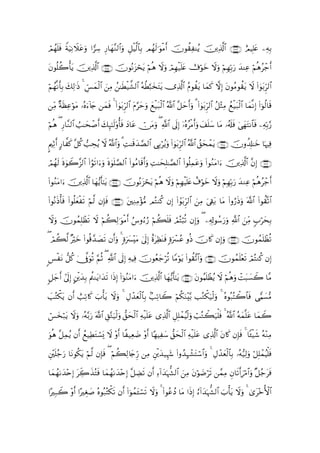 بِهِۦ عَلِيمٌ ﴿٢٧٣﴾ ٱلَّذِينَ يُنفِقُونَ أَمْوَٰلَهُم بِٱلَّيْلِ وَٱلنَّهَارِ سِرًّا وَعَلَانِيَةً فَلَهُمْ
أَجْرُهُمْ عِندَ رَبِّهِمْ وَلَا خَوْفٌ عَلَيْهِمْ وَلَا هُمْ يَحْزَنُونَ ﴿٢٧٤﴾ ٱلَّذِينَ يَأْكُلُونَ
ٱلرِّبَوٰا۟ لَا يَقُومُونَ إِلَّا كَمَا يَقُومُ ٱلَّذِى يَتَخَبَّطُهُ ٱلشَّيْطَٰنُ مِنَ ٱلْمَسِّ ۚ ذَٰلِكَ بِأَنَّهُمْ
قَالُوٓا۟ إِنَّمَا ٱلْبَيْعُ مِثْلُ ٱلرِّبَوٰا۟ ۗ وَأَحَلَّ ٱللَّهُ ٱلْبَيْعَ وَحَرَّمَ ٱلرِّبَوٰا۟ ۚ فَمَن جَآءَهُۥ مَوْعِظَةٌ مِّن
رَّبِّهِۦ فَٱنتَهَىٰ فَلَهُۥ مَا سَلَفَ وَأَمْرُهُۥٓ إِلَى ٱللَّهِ ۖ وَمَنْ عَادَ فَأُو۟لَٰٓئِكَ أَصْحَٰبُ ٱلنَّارِ ۖ هُمْ
فِيهَا خَٰلِدُونَ ﴿٢٧٥﴾ يَمْحَقُ ٱللَّهُ ٱلرِّبَوٰا۟ وَيُرْبِى ٱلصَّدَقَٰتِ ۗ وَٱللَّهُ لَا يُحِبُّ كُلَّ كَفَّارٍ أَثِيمٍ
﴿٢٧٦﴾ إِنَّ ٱلَّذِينَ ءَامَنُوا۟ وَعَمِلُوا۟ ٱلصَّٰلِحَٰتِ وَأَقَامُوا۟ ٱلصَّلَوٰةَ وَءَاتَوُا۟ ٱلزَّكَوٰةَ لَهُمْ
أَجْرُهُمْ عِندَ رَبِّهِمْ وَلَا خَوْفٌ عَلَيْهِمْ وَلَا هُمْ يَحْزَنُونَ ﴿٢٧٧﴾ يَٰٓأَيُّهَا ٱلَّذِينَ ءَامَنُوا۟
ٱتَّقُوا۟ ٱللَّهَ وَذَرُوا۟ مَا بَقِىَ مِنَ ٱلرِّبَوٰٓا۟ إِن كُنتُم مُّؤْمِنِينَ ﴿٢٧٨﴾ فَإِن لَّمْ تَفْعَلُوا۟ فَأْذَنُوا۟
بِحَرْبٍ مِّنَ ٱللَّهِ وَرَسُولِهِۦ ۖ وَإِن تُبْتُمْ فَلَكُمْ رُءُوسُ أَمْوَٰلِكُمْ لَا تَظْلِمُونَ وَلَا
تُظْلَمُونَ ﴿٢٧٩﴾ وَإِن كَانَ ذُو عُسْرَةٍ فَنَظِرَةٌ إِلَىٰ مَيْسَرَةٍ ۚ وَأَن تَصَدَّقُوا۟ خَيْرٌ لَّكُمْ ۖ
إِن كُنتُمْ تَعْلَمُونَ ﴿٢٨٠﴾ وَٱتَّقُوا۟ يَوْمًا تُرْجَعُونَ فِيهِ إِلَى ٱللَّهِ ۖ ثُمَّ تُوَفَّىٰ كُلُّ نَفْسٍ
مَّا كَسَبَتْ وَهُمْ لَا يُظْلَمُونَ ﴿٢٨١﴾ يَٰٓأَيُّهَا ٱلَّذِينَ ءَامَنُوٓا۟ إِذَا تَدَايَنتُم بِدَيْنٍ إِلَىٰٓ أَجَلٍ
مُّسَمًّى فَٱكْتُبُوهُ ۚ وَلْيَكْتُب بَّيْنَكُمْ كَاتِبٌۢ بِٱلْعَدْلِ ۚ وَلَا يَأْبَ كَاتِبٌ أَن يَكْتُبَ
كَمَا عَلَّمَهُ ٱللَّهُ ۚ فَلْيَكْتُبْ وَلْيُمْلِلِ ٱلَّذِى عَلَيْهِ ٱلْحَقُّ وَلْيَتَّقِ ٱللَّهَ رَبَّهُۥ وَلَا يَبْخَسْ
مِنْهُ شَيْـًٔا ۚ فَإِن كَانَ ٱلَّذِى عَلَيْهِ ٱلْحَقُّ سَفِيهًا أَوْ ضَعِيفًا أَوْ لَا يَسْتَطِيعُ أَن يُمِلَّ هُوَ
فَلْيُمْلِلْ وَلِيُّهُۥ بِٱلْعَدْلِ ۚ وَٱسْتَشْهِدُوا۟ شَهِيدَيْنِ مِن رِّجَالِكُمْ ۖ فَإِن لَّمْ يَكُونَا رَجُلَيْنِ
فَرَجُلٌ وَٱمْرَأَتَانِ مِمَّن تَرْضَوْنَ مِنَ ٱلشُّهَدَآءِ أَن تَضِلَّ إِحْدَىٰهُمَا فَتُذَكِّرَ إِحْدَىٰهُمَا
ٱلْأُخْرَىٰ ۚ وَلَا يَأْبَ ٱلشُّهَدَآءُ إِذَا مَا دُعُوا۟ ۚ وَلَا تَسْـَٔمُوٓا۟ أَن تَكْتُبُوهُ صَغِيرًا أَوْ كَبِيرًا